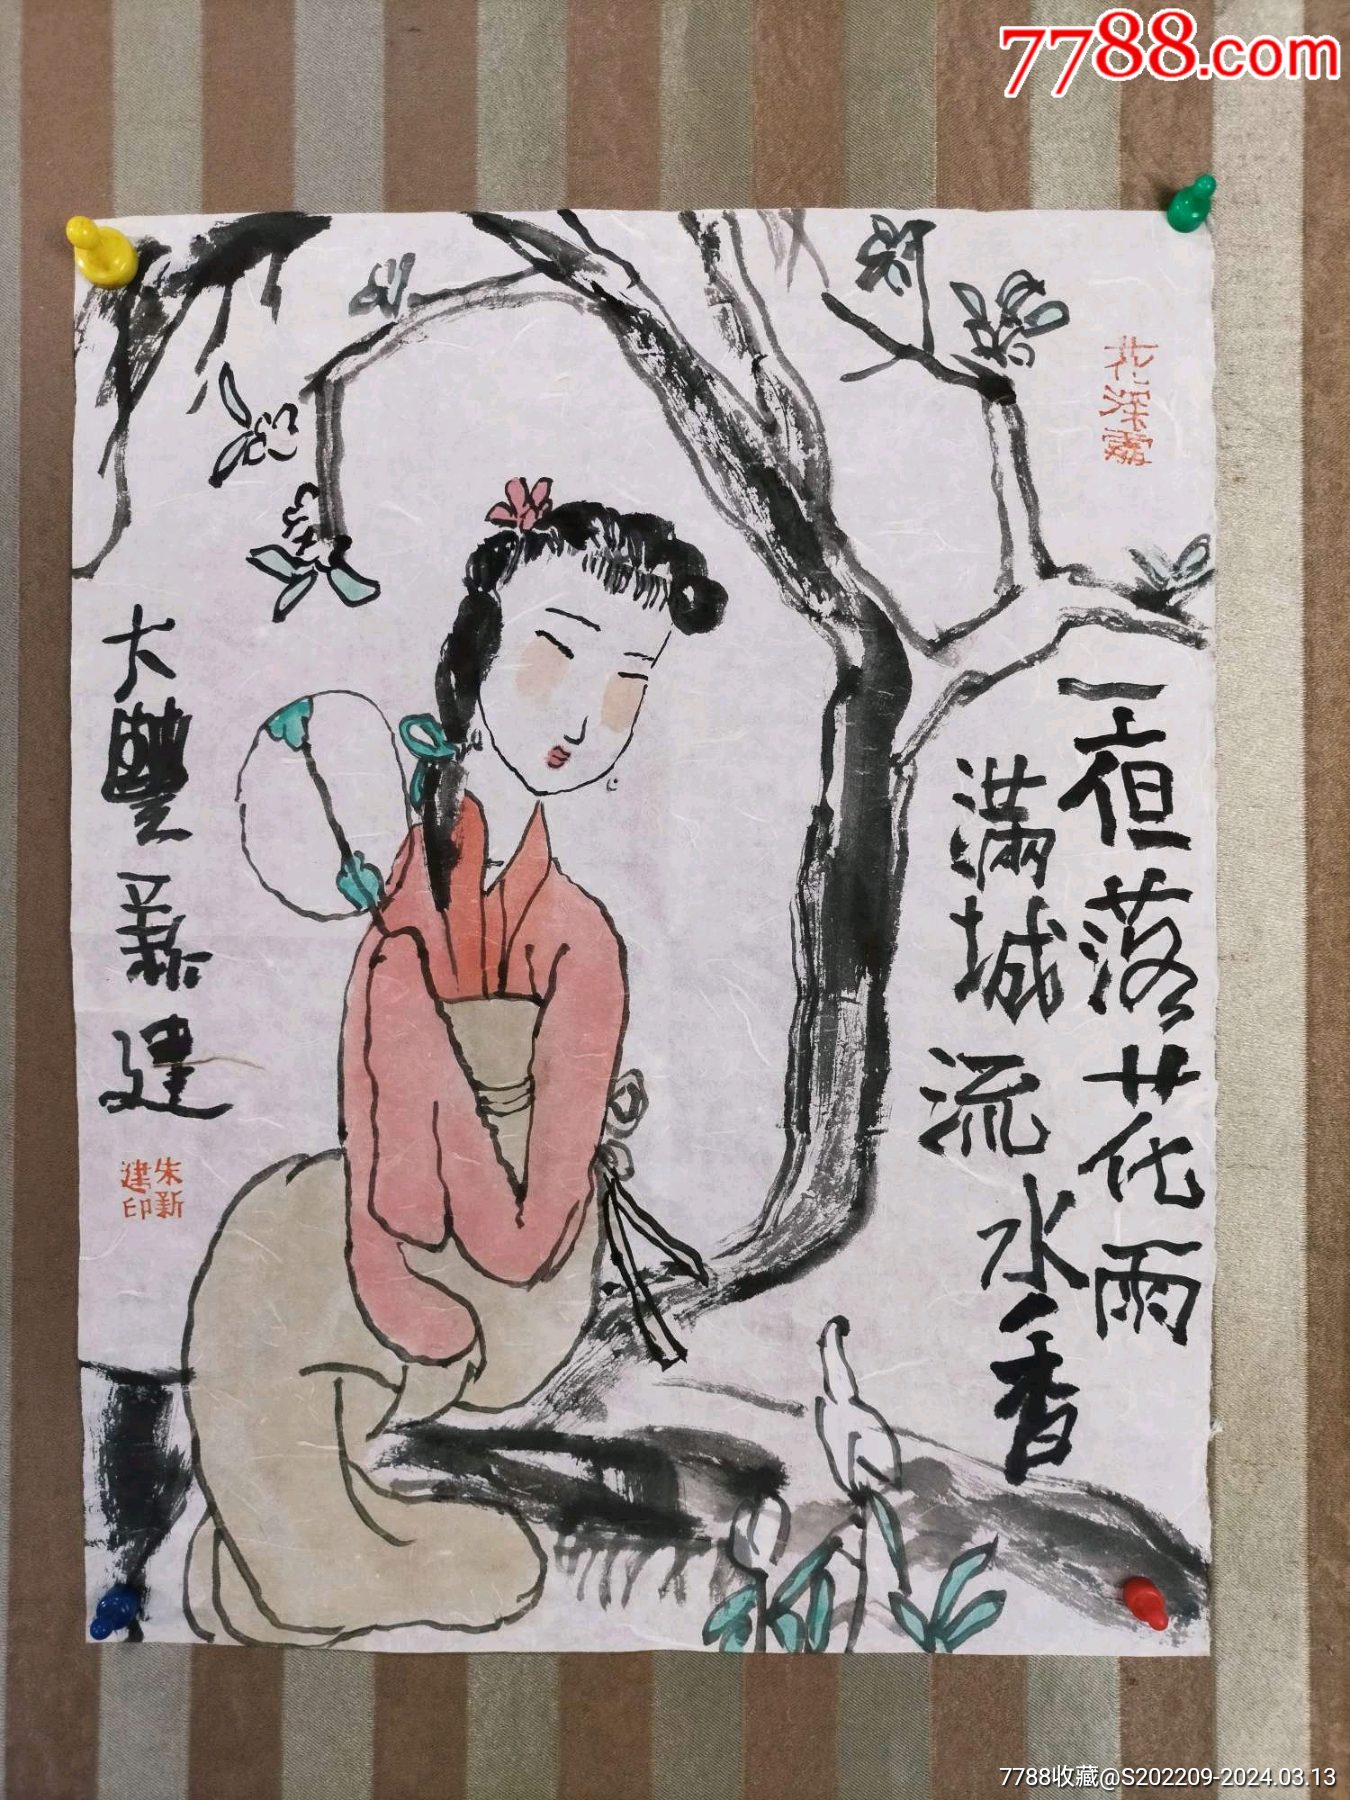 7788.com
一夜落花雨
满城流水香
大豐新建
朱新
建印
7788收藏@S202209-2024.03.13